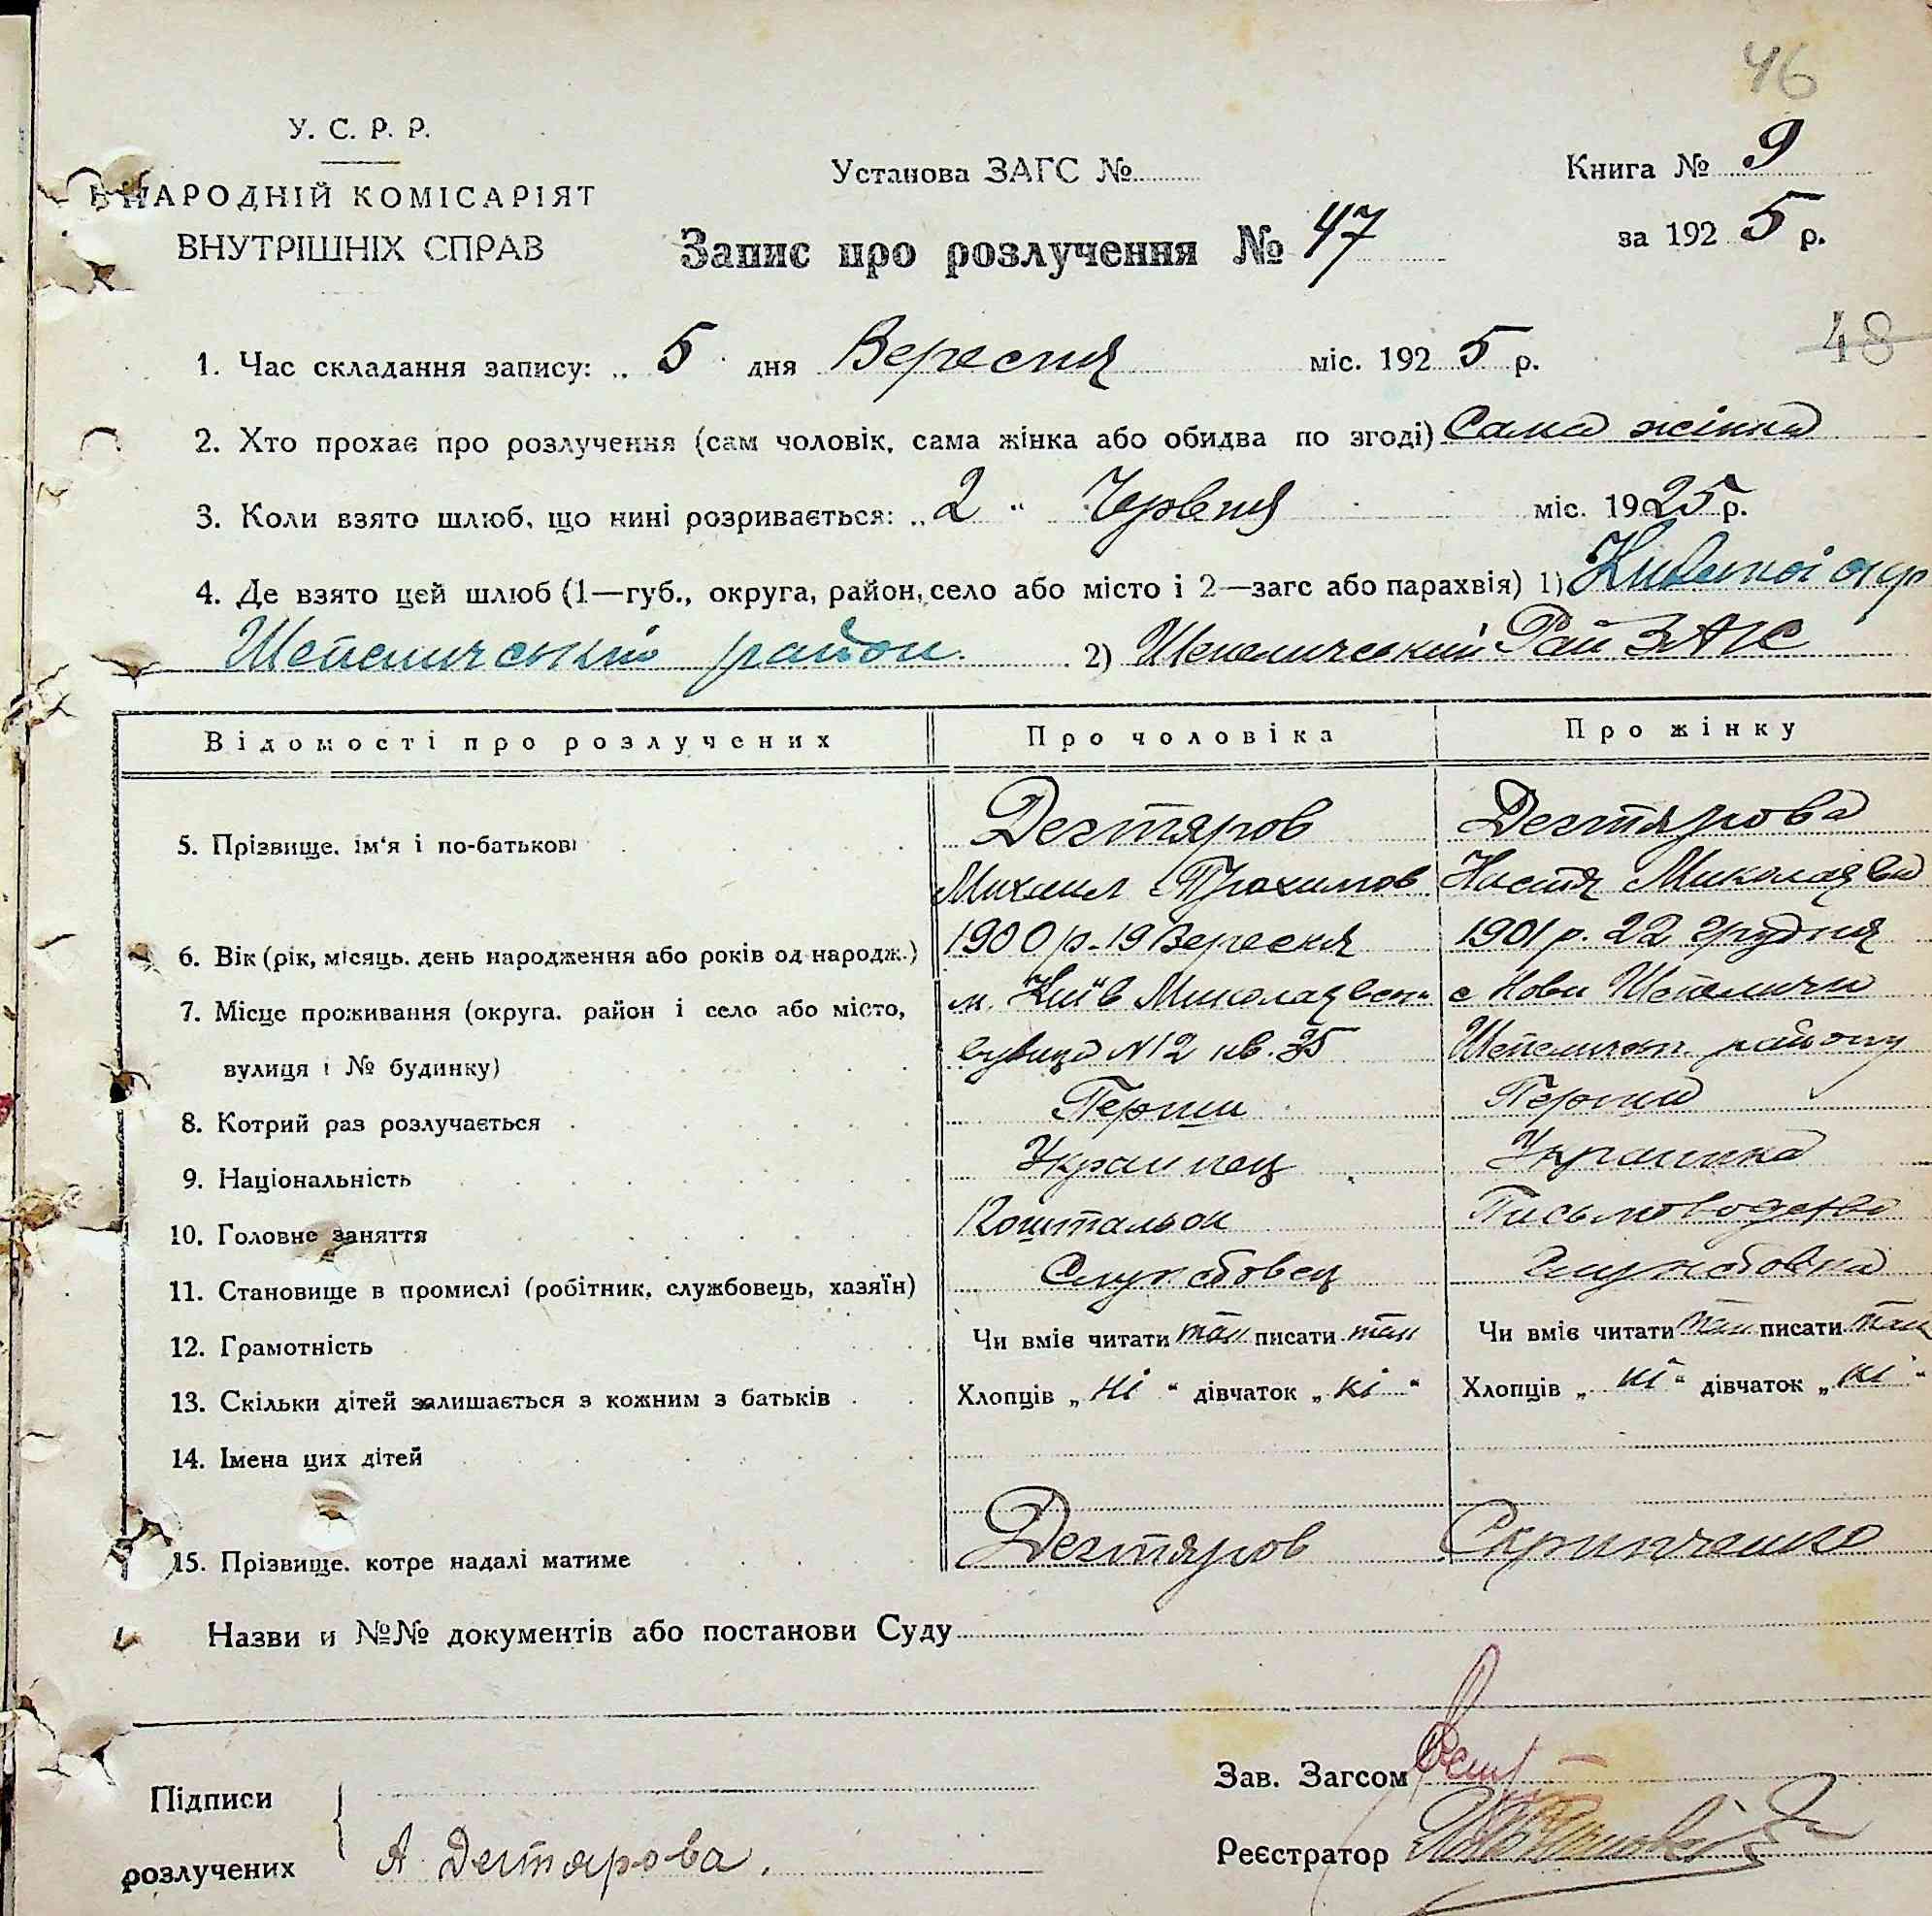 46
У. С. Р. Р.
НАРОДНІЙ КОМІСАРІЯТ
ВНУТРІШНІХ СПРАВ
Установа ЗАГС №
Книга № 9
за 1925 р.
Запис про розлучення № 47
48
1. Час складання запису: „ 5 " дня Вересня міс. 1925 р.
2. Хто прохає про розлучення (сам чоловік, сама жінка або обидва по згоді) Сама жінка
3. Коли взято шлюб, що нині розривається: „ 2 " Червня міс. 1925 р.
4. Де взято цей шлюб (1—губ., округа, район, село або місто і 2—загс або парахвія) 1)
Шепеличський район. 2) Шепеличський Рай ЗАГС
Відомості про розлучених Про чоловіка Про жінку
5. Прізвище, ім'я і по-батькові Дегтяров Дегтярова
Михаил Трохимов Настя Миколаявна
6. Вік (рік, місяць, день народження або років од народж.) 1900 р. 19 Вересня 1901 р. 22 Грудня
7. Місце проживання (округа, район і село або місто, м. Київ с Нови Шепеличи
вулиця і № будинку) вулиця №12 кв. 35 району
8. Котрий раз розлучається Перши Перша
9. Національність Украинец Украинка
10. Головне заняття Поштальон
11. Становище в промислі (робітник, службовець, хазяїн) Службовец Службовка
12. Грамотність Чи вміє читати так писати так Чи вміє читати так писати так
13. Скільки дітей залишається з кожним з батьків Хлопців „ ні " дівчаток „ ні " Хлопців „ ні " дівчаток „ ні "
14. Імена цих дітей
15. Прізвище, котре надалі матиме Дегтяров Скрипченко
Назви и №№ документів або постанови Суду
Підписи
розлучених
А Дегтярова.
Зав. Загсом
Реєстратор